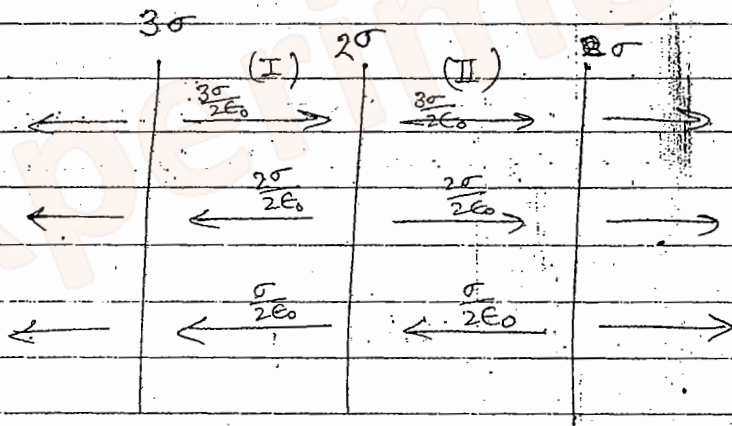 3σ 2σ σ
(I) (II)
3σ/2ε₀ 3σ/2ε₀
2σ/2ε₀ 2σ/2ε₀
σ/2ε₀ σ/2ε₀